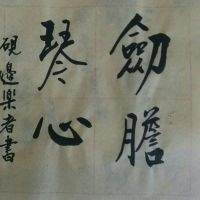 劍膽
琴心
硯邊樂者書